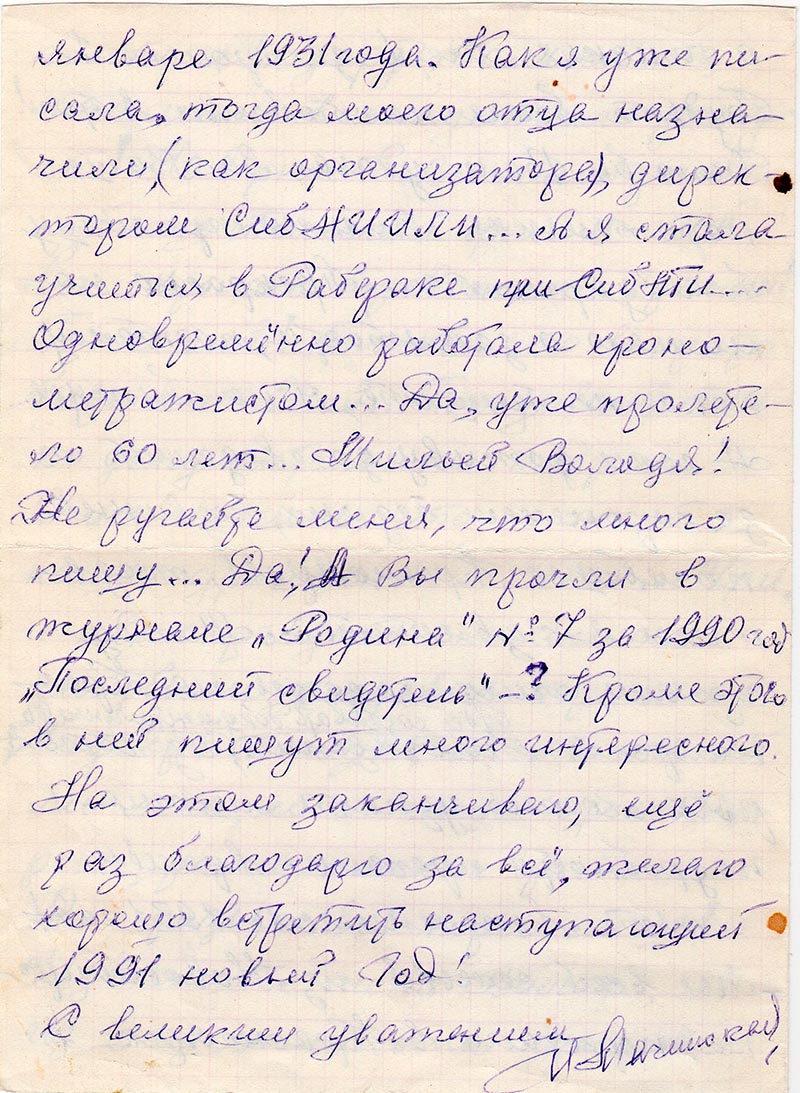 январе 1931 года. Как я уже пи-
сала, тогда моего отца назна-
чили, (как организатора), дирек-
тором СибНИИЛИ... А я стала
учиться в Рабфаке при СибНТИ....
Одновремённо работала хроно-
метражистом... Да, уже пролете-
ло 60 лет... Милый Володя!
Не ругайте меня, что много
пишу... Да! А Вы прочли в
журнале „Родина" №7 за 1990 год
„Последний свидетель" – ? Кроме этого
в ней пишут много интересного.
На этом заканчиваю, ещё
раз благодарю за всё, желаю
хорошо встретить наступающий
1991 новый Год!
С великим уважением